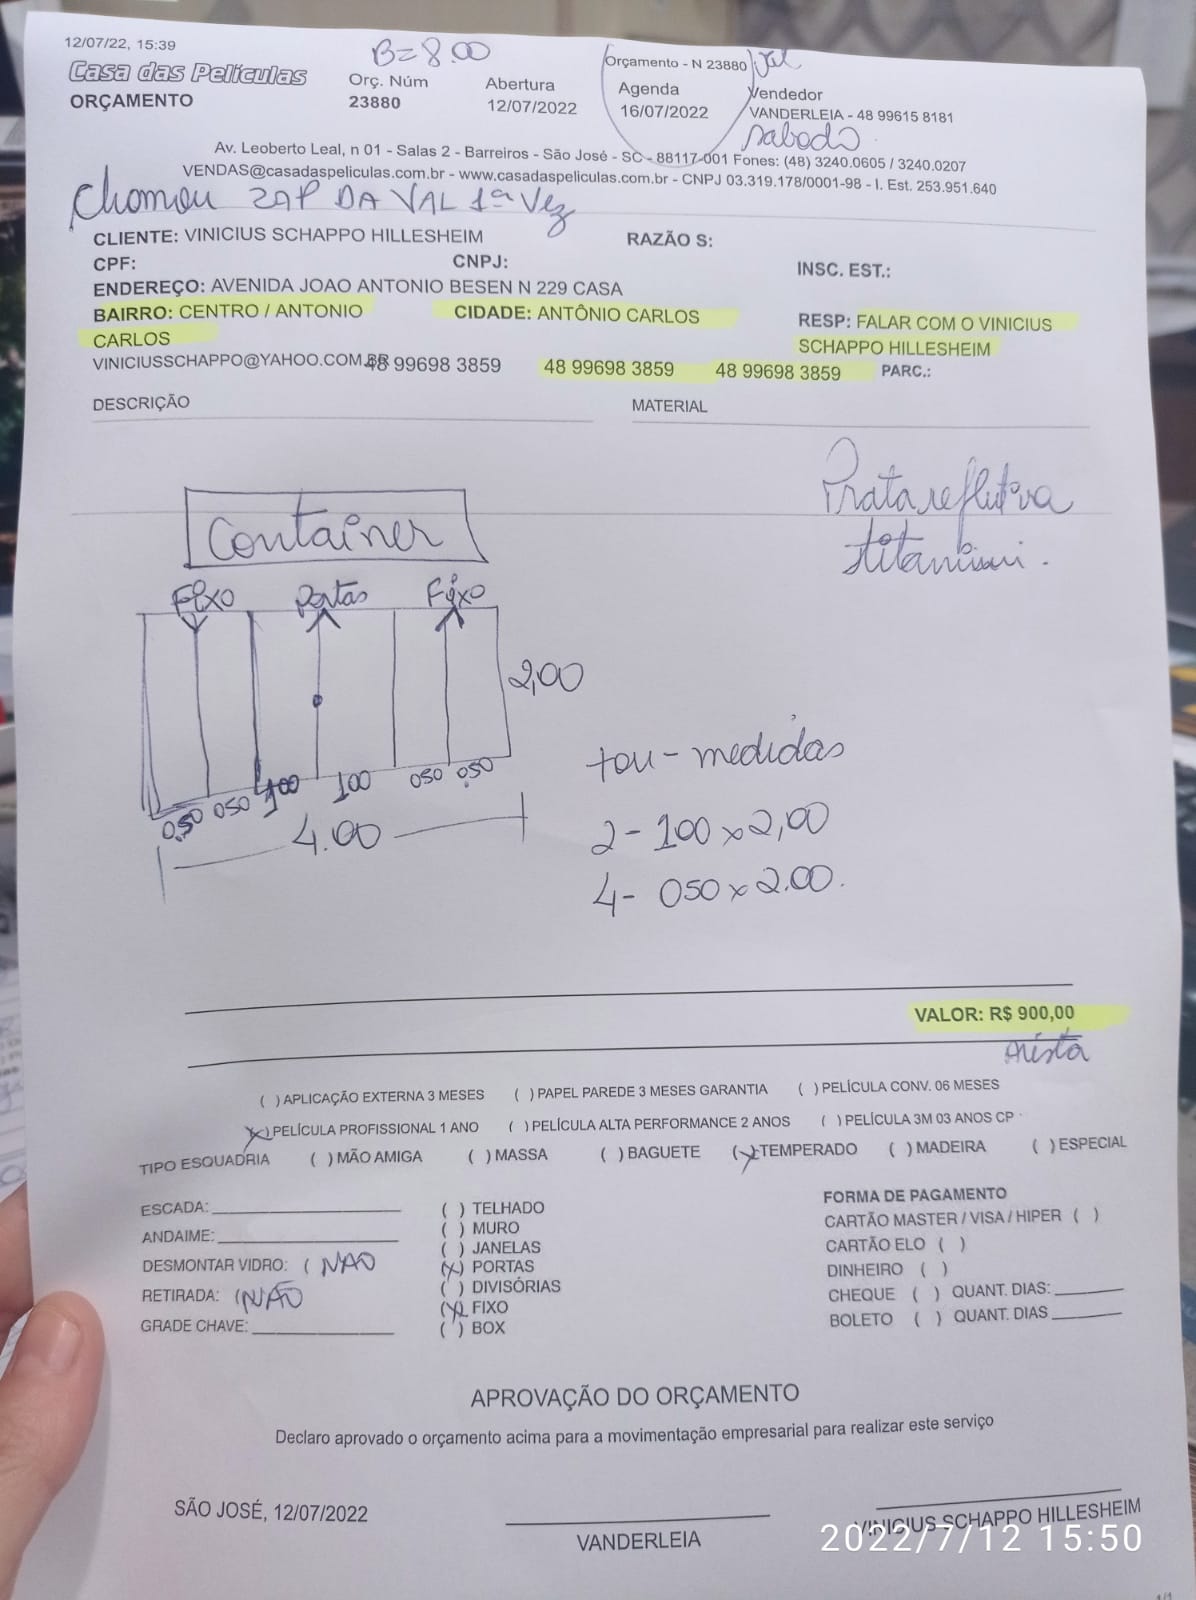 12/07/22, 15:39
B=8.00
Orçamento - N 23880
Val
Casa das Películas
ORÇAMENTO
Orç. Núm
23880
Abertura
12/07/2022
Agenda
16/07/2022
Vendedor
VANDERLEIA - 48 99615 8181
sabado
Av. Leoberto Leal, n 01 - Salas 2 - Barreiros - São José - SC - 88117-001 Fones: (48) 3240.0605 / 3240.0207
VENDAS@casadaspeliculas.com.br - www.casadaspeliculas.com.br - CNPJ 03.319.178/0001-98 - I. Est. 253.951.640
Chamou ZAP DA VAL 1ª Vez
CLIENTE: VINICIUS SCHAPPO HILLESHEIM
RAZÃO S:
CPF:
CNPJ:
INSC. EST.:
ENDEREÇO: AVENIDA JOAO ANTONIO BESEN N 229 CASA
BAIRRO: CENTRO / ANTONIO CARLOS
CIDADE: ANTÔNIO CARLOS
RESP: FALAR COM O VINICIUS SCHAPPO HILLESHEIM
VINICIUSSCHAPPO@YAHOO.COM.BR
48 99698 3859
48 99698 3859
48 99698 3859
PARC.:
DESCRIÇÃO
MATERIAL
Prata reflutiva
Container
Fixo Portas Fixo
2,00
0,50 050 100 100 050 050
4.00
medidas
2- 100 x 2,00
4- 050 x 2.00.
VALOR: R$ 900,00
( ) APLICAÇÃO EXTERNA 3 MESES ( ) PAPEL PAREDE 3 MESES GARANTIA ( ) PELÍCULA CONV. 06 MESES
(X) PELÍCULA PROFISSIONAL 1 ANO ( ) PELÍCULA ALTA PERFORMANCE 2 ANOS ( ) PELÍCULA 3M 03 ANOS CP
TIPO ESQUADRIA ( ) MÃO AMIGA ( ) MASSA ( ) BAGUETE (X) TEMPERADO ( ) MADEIRA ( ) ESPECIAL
ESCADA:
ANDAIME:
DESMONTAR VIDRO: ( NAO
RETIRADA: ( NÃO
GRADE CHAVE:
( ) TELHADO
( ) MURO
( ) JANELAS
(X) PORTAS
( ) DIVISÓRIAS
(X) FIXO
( ) BOX
FORMA DE PAGAMENTO
CARTÃO MASTER / VISA / HIPER ( )
CARTÃO ELO ( )
DINHEIRO ( )
CHEQUE ( ) QUANT. DIAS:
BOLETO ( ) QUANT. DIAS
APROVAÇÃO DO ORÇAMENTO
Declaro aprovado o orçamento acima para a movimentação empresarial para realizar este serviço
SÃO JOSÉ, 12/07/2022
VANDERLEIA
VINICIUS SCHAPPO HILLESHEIM
2022/7/12 15:50
1/1